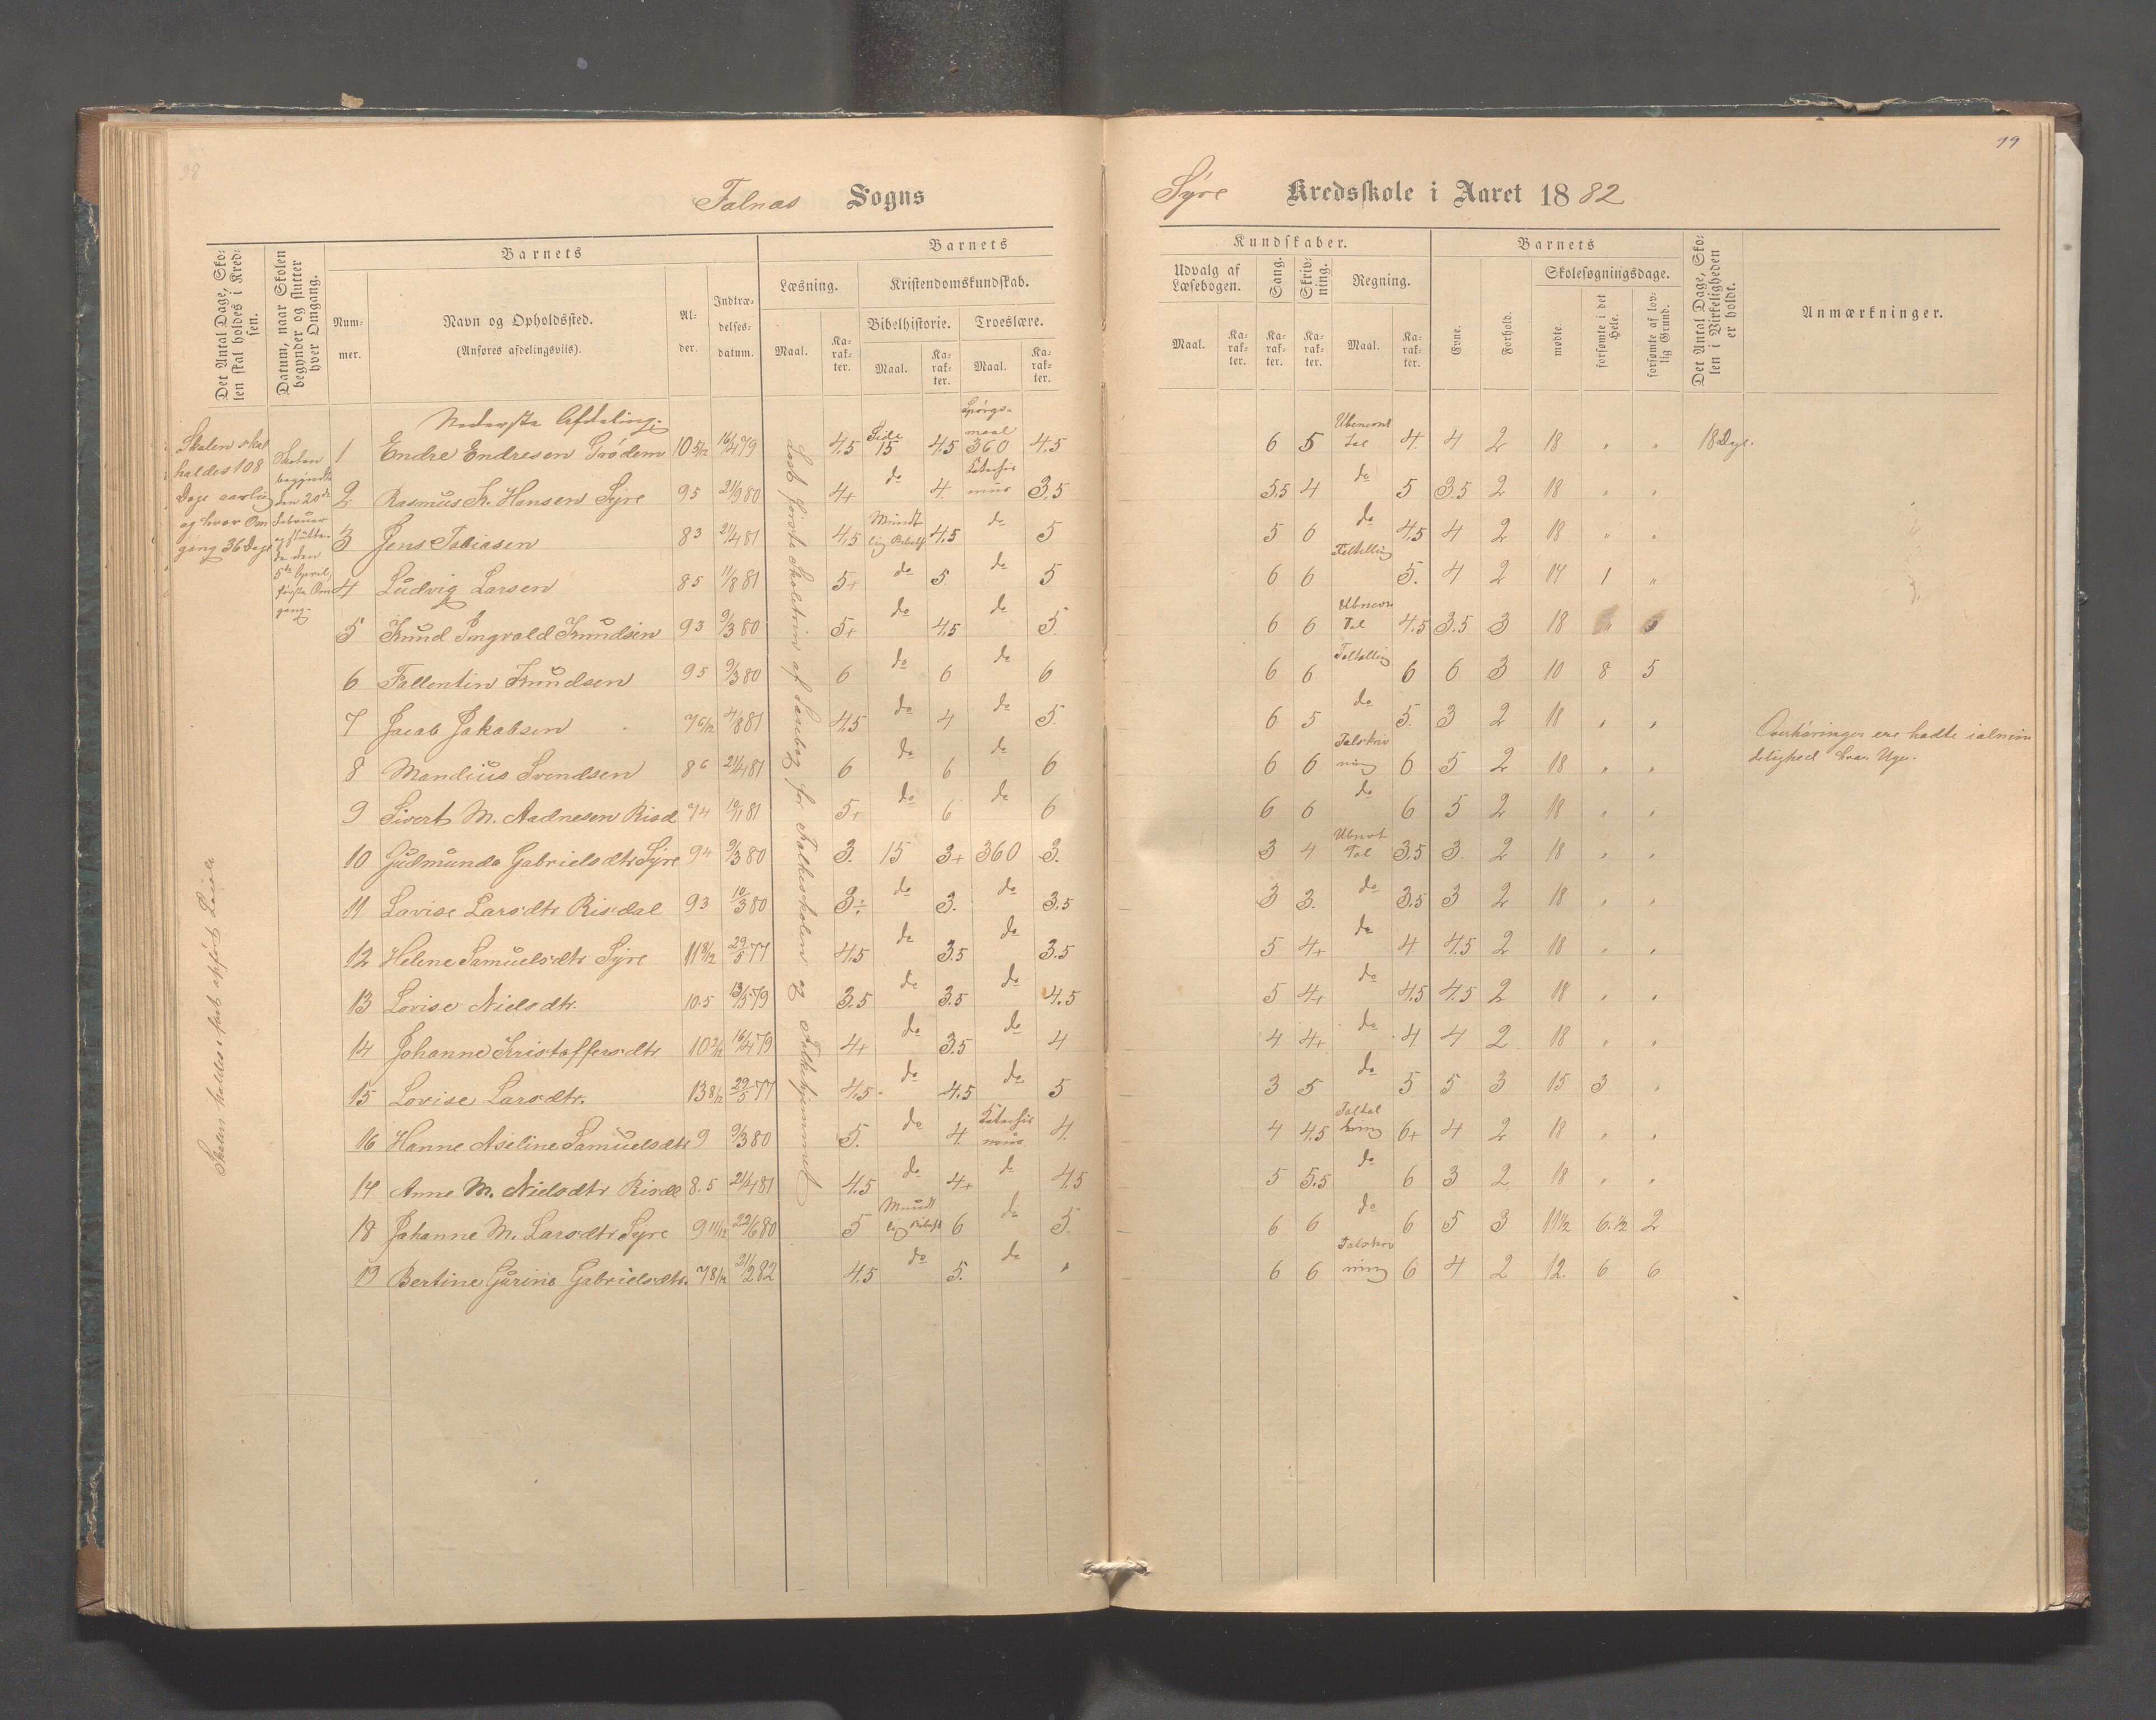 98
Falnæs Sogns
Det Antal Dage, Sko-
len skal holdes i Kred-
sen.
Datum, naar Skolen
begynder og slutter
hver Omgang.
Barnets
Num-
mer.
Navn og Opholdssted.
(Anføres afdelingsviis).
Al-
der.
Indtræ-
delses-
datum.
Barnets
Læsning.
Maal.
Ka-
rak-
ter.
Kristendomskundskab.
Bibelhistorie.
Maal.
Ka-
rak-
ter.
Troeslære.
Maal.
Ka-
rak-
ter.
Skolen skal
holdes 108
Dage aarlig
og hver Om
gang 36 Dage
Skolen
begyndte
den 20de
Februar
og slutte-
de den
5te April,
første Om
gang.
Skolen holdes i fast opført Locale
Læst første Skoletrin af Læsebog for Folkeskolen og Folkehjemmet
Nederste Afdeling.
1 Endre Endresen Trödem 10 5/12 16/4 79 4.5 Side 15 4.5 Spörgs-maal 360 4.5
2 Rasmus Kr. Hansen Syre 9 5 21/9 80 4+ do 4. Katechismus 3.5
3 Jens Tobiasen 8 3 21/4 81 4.5 Mundtlig Bibelh 4.5 do 5
4 Ludvig Larsen 8 5 11/8 81 5+ do 5 do 5
5 Knud Ingvald Knudsen 9 3 9/3 80 5+ do 4.5 do 5.
6 Fallentin Knudsen 9 5 9/3 80 6 do 6 do 6
7 Jacob Jakobsen 7 6/12 4/8 81 4.5 do 4 do 5.
8 Mandius Svendsen 8 6 21/4 81 6 do 6 do 6
9 Sivert M. Aadnesen Risd 7 4 19/1 81 5+ do 6 do 6
10 Gudmunda Gabrielsdtr Syre 9 4 9/3 80 3. 15 3+ 360 3.
11 Lovise Larsdtr Risdal 9 3 10/3 80 3÷ do 3. do 3.5
12 Helene Samuelsdtr Syre 11 9/12 29/5 77 4.5 do 3.5 do 3.5
13 Lovise Nielsdtr. 10.5 13/5 79 3.5 do 3.5 do 4.5
14 Johanne Kristoffersdtr 10 2/12 16/4 79 4+ do 3.5 do 4
15 Lovise Larsdtr. 13 8/12 29/5 77 4.5 do 4.5 do 5
16 Hanne Aseline Samuelsdtr 9 9/3 80 5. do 4. Katechismus 4.
17 Anne M. Nielsdtr Risdl 8.5 21/4 81 4.5 do 4+ do 4.5
18 Johanne M. Larsdtr Syre 9 11/12 22/6 80 5 Mundtlig Bibelh 6 do 5.
19 Bertine Gurine Gabrielsdtr. 7 8/12 21/2 82 4.5 do 5. do "
99
Syre Kredsskole i Aaret 1882
Kundskaber.
Udvalg af
Læsebogen.
Maal.
Ka-
rak-
ter.
Sang.
Ka-
rak-
ter.
Skriv-
ning.
Ka-
rak-
ter.
Regning.
Maal.
Ka-
rak-
ter.
Barnets
Evne.
Forhold.
Skolesøgningsdage.
mødte.
forsømte i det
Hele.
forsømte af lov-
lig Grund.
Det Antal Dage, Sko-
len i Virkeligheden
er holdt.
Anmærkninger.
6 5 Ubenevnt Tal 4. 4 2 18 " " 18 Dage.
5.5 4 do 5 3.5 2 18 " "
5 6 do 4.5 4 2 18 " "
6 6 Taltelling 5. 4 2 17 1 "
6 6 Ubnevn Tal 4.5 3.5 3 18 "
6 6 Taltelling 6 6 3 10 8 5
6 5 do 5. 3 2 18 " "
6 6 Talskrivning 6 5 2 18 " "
6 6 do 6 5 2 18 " "
3 4 Ubnevt Tal 3.5 3. 2 18 " "
3 3. do 3.5 3 2 18 " "
5 4+ do 4 4.5 2 18 " "
5 4+ do 4.5 4.5 2 18 " "
4 4+ do 4 4 2 18 " "
3 5 do 5 5 3 15 3 "
4 4.5 6+ 4 2 18 " "
5 5.5 do 6 3 2 18 " "
6 6 do 6 5 3 11 1/2 6.1/2 2
6 6 Talskrivning 6 4 2 12. 6 6
Overhøringer ere holdte i almin
delighed hver Uge.